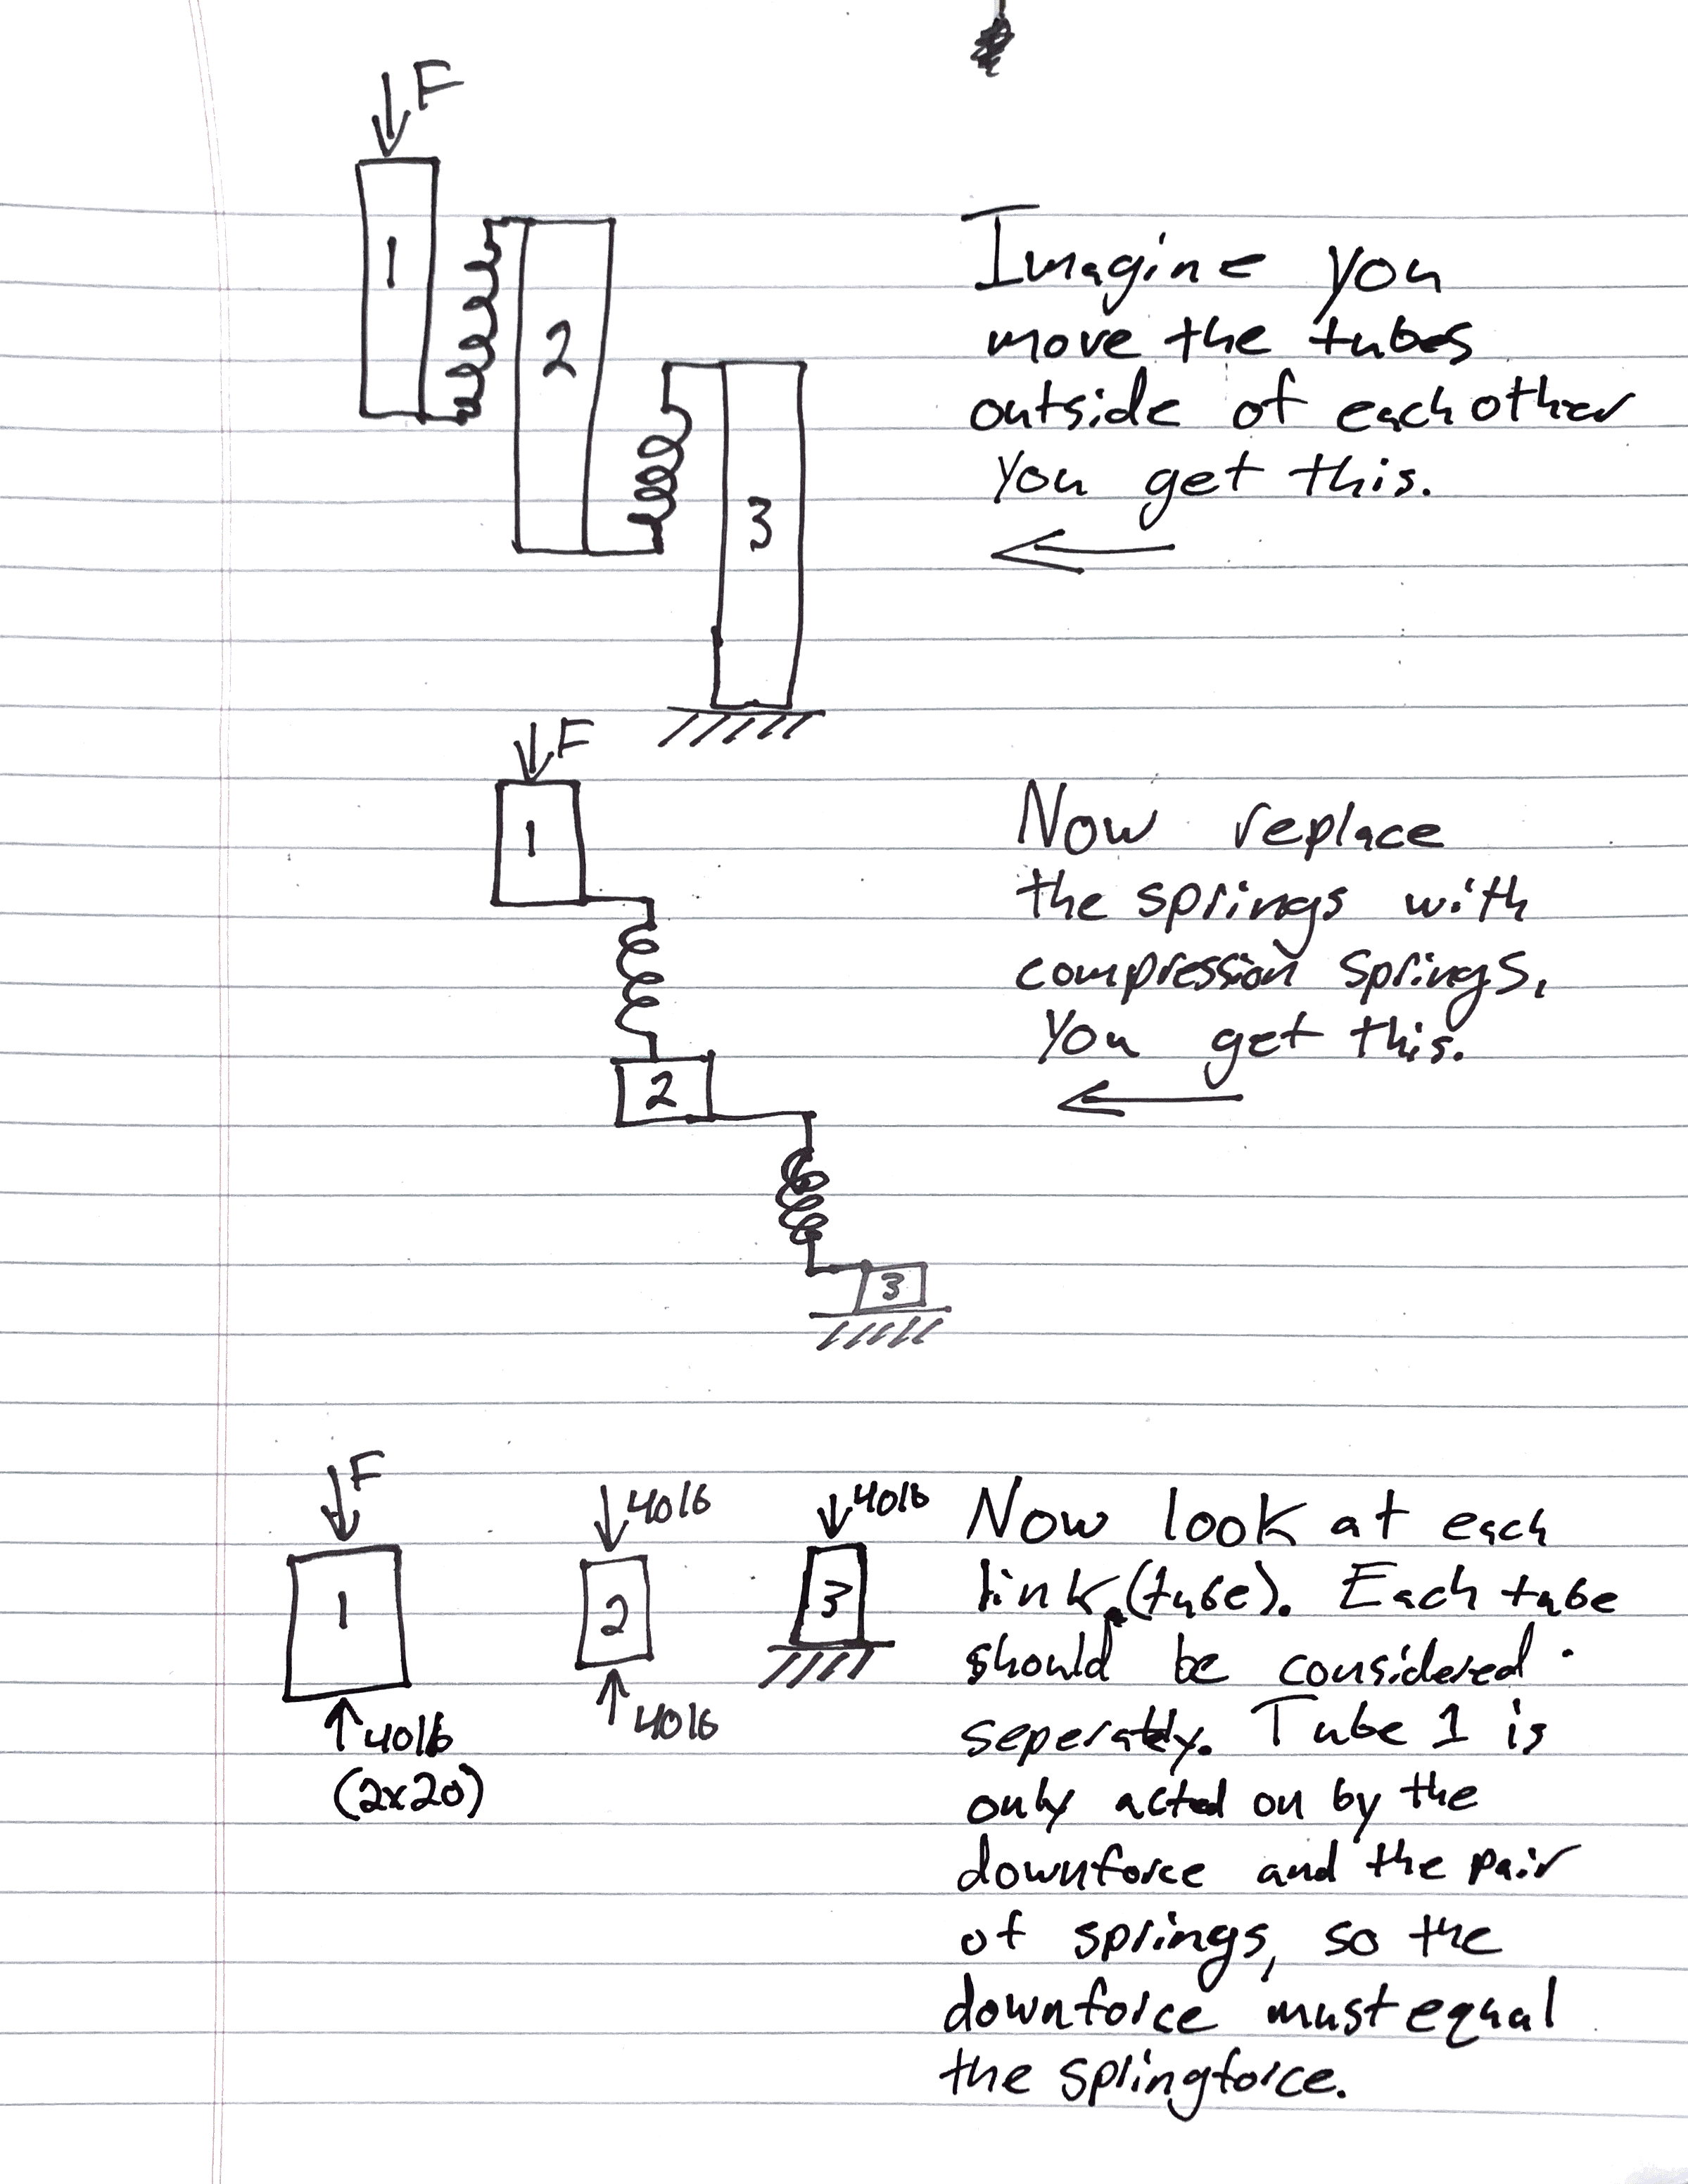 F
1
2
3
Imagine you
move the tubes
outside of each other
You get this.
F
1
2
3
Now replace
the springs with
compression springs,
You get this.
F
1
↑40lb
(2x20)
↓40lb
2
↑40lb
↓40lb
3
Now look at each
link (tube). Each tube
should be considered
seperatly. Tube 1 is
only acted on by the
downforce and the pair
of springs, so the
downforce must equal
the springforce.